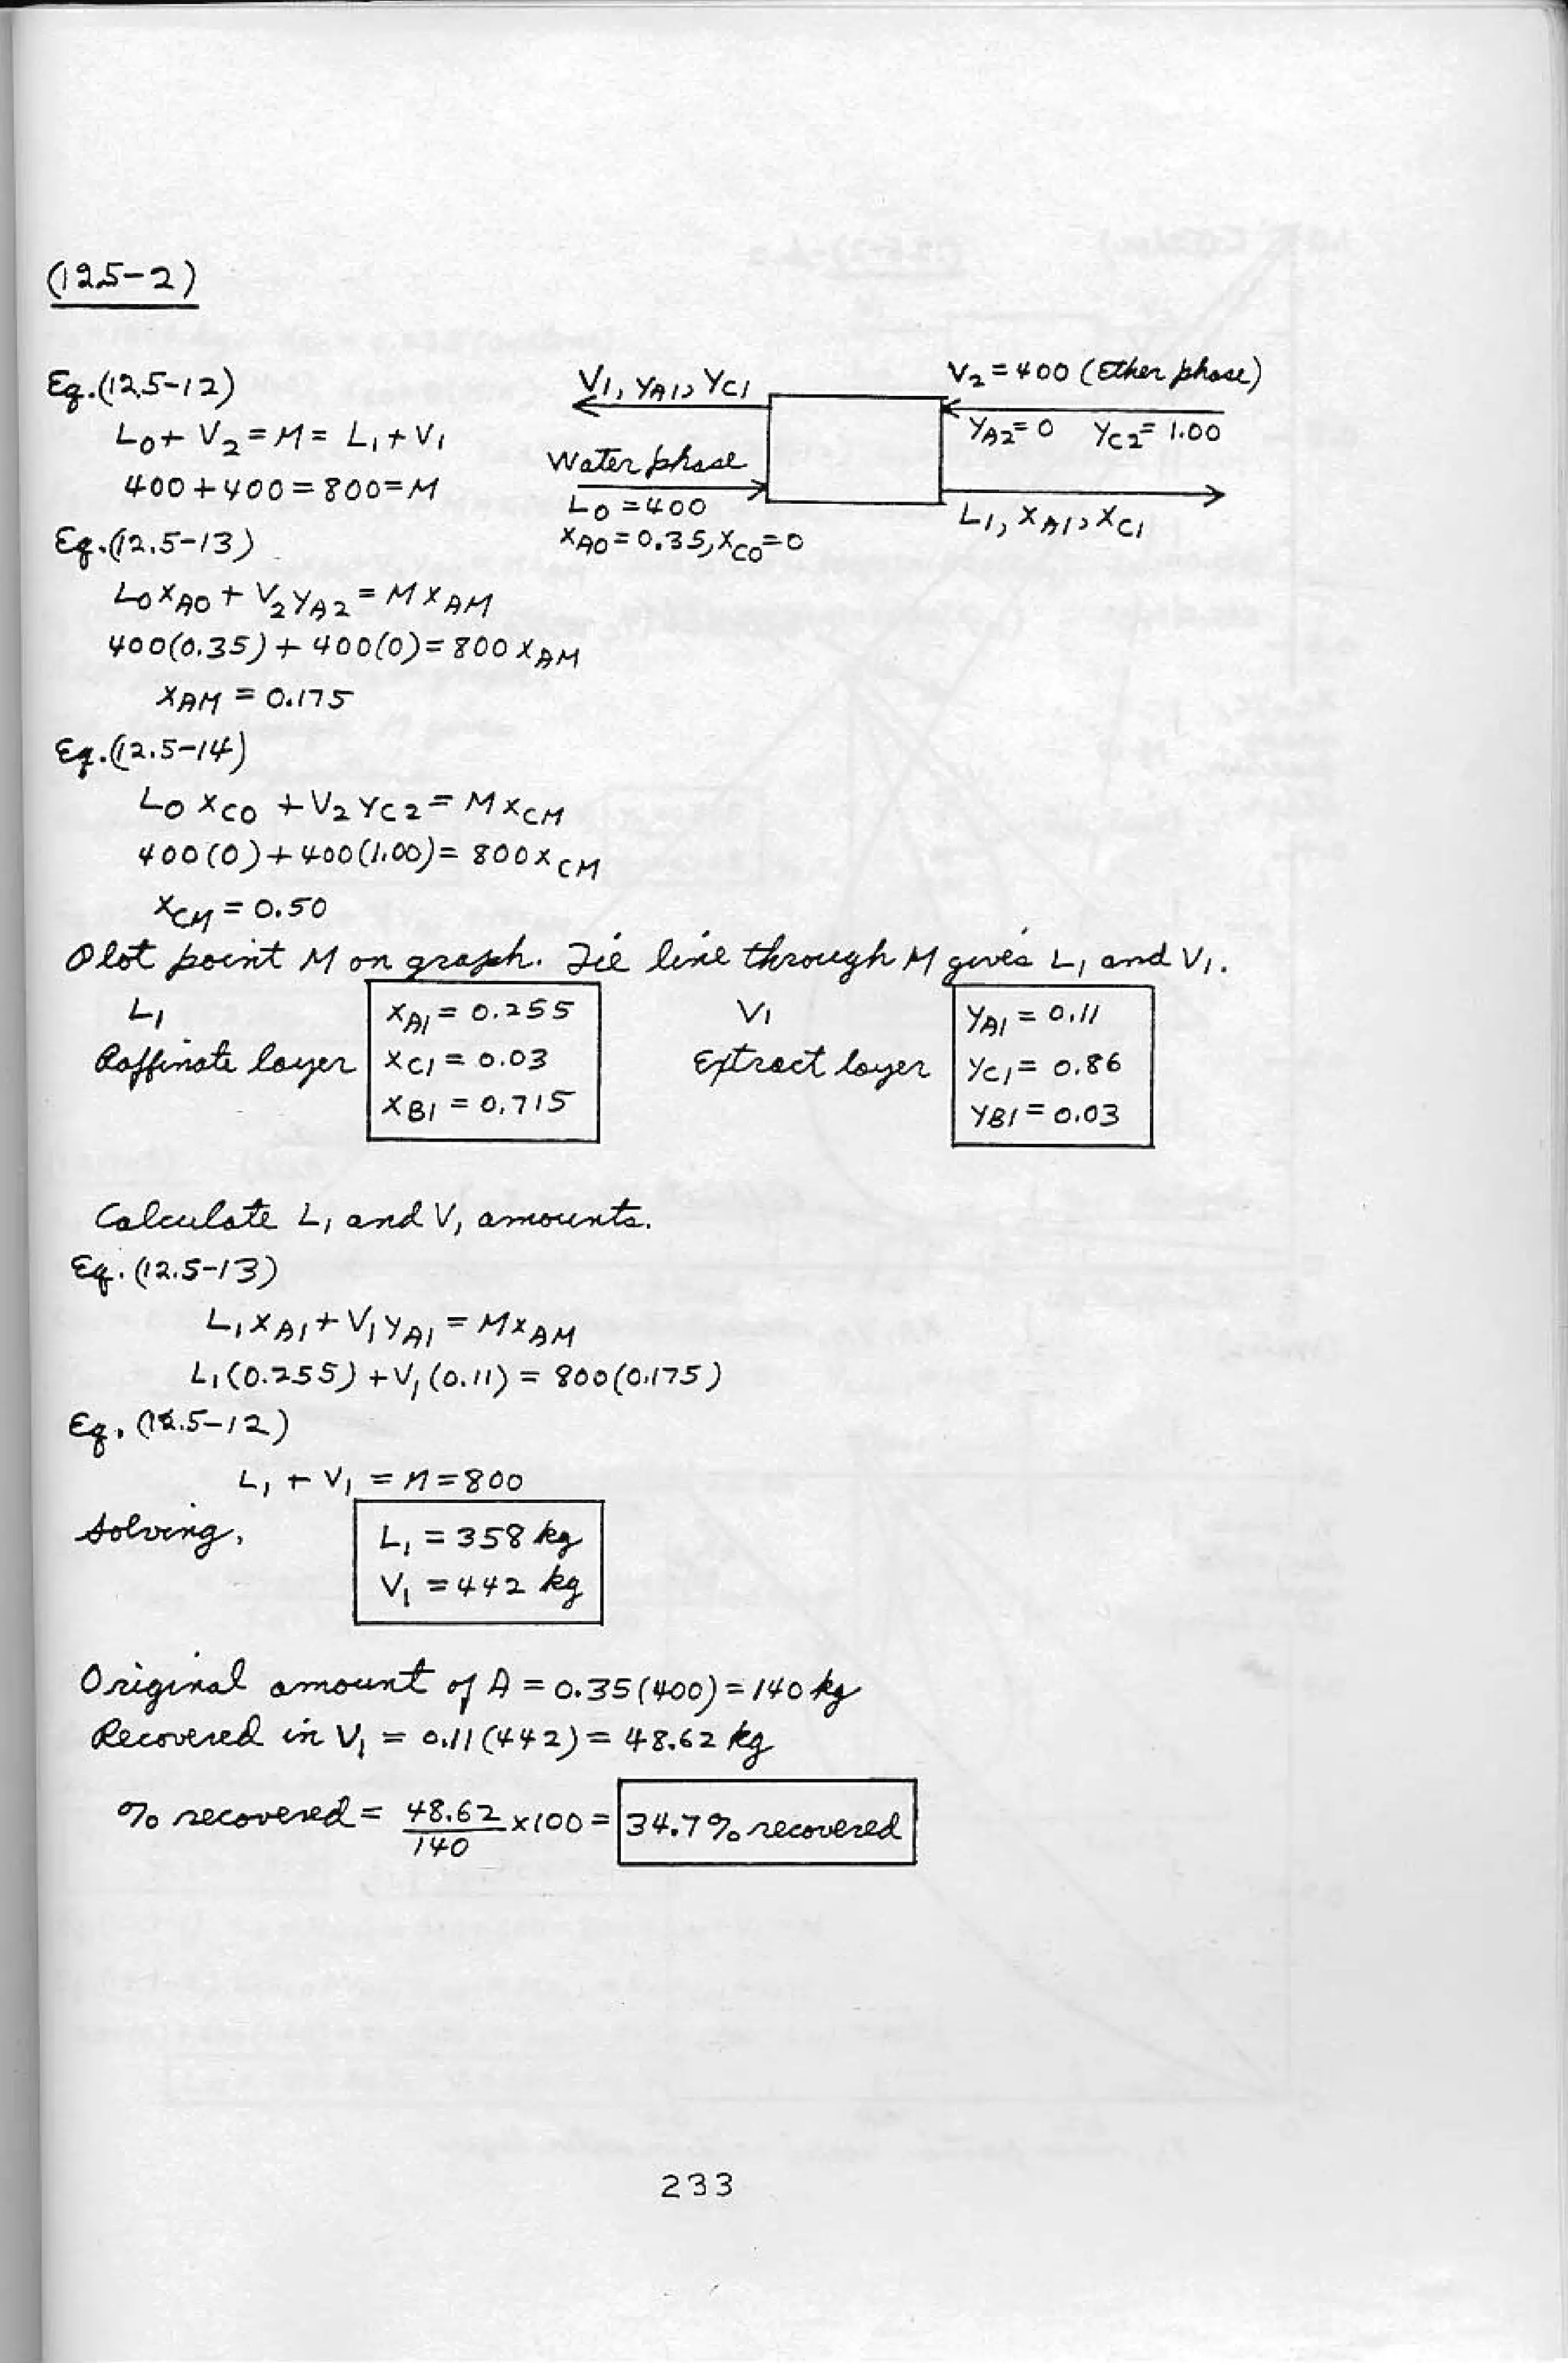 (12.5-2)
Eq.(12.5-12)
L0 + V2 = M = L1 + V1
400 + 400 = 800 = M
V1, yA1, yC1
V2 = 400 (Ether phase)
yA2 = 0 yC2 = 1.00
Water phase
L0 = 400
xA0 = 0.35, xC0 = 0
L1, xA1, xC1
Eq.(12.5-13)
L0xA0 + V2yA2 = MxAM
400(0.35) + 400(0) = 800xAM
xAM = 0.175
Eq.(12.5-14)
L0xC0 + V2yC2 = MxCM
400(0) + 400(1.00) = 800xCM
xCM = 0.50
Plot point M on graph. Tie line through M gives L1 and V1.
L1 xA1 = 0.255 V1 yA1 = 0.11
Raffinate layer xC1 = 0.03 Extract layer yC1 = 0.86
xB1 = 0.715 yB1 = 0.03
Calculate L1 and V1 amounts.
Eq. (12.5-13)
L1xA1 + V1yA1 = MxAM
L1(0.255) + V1(0.11) = 800(0.175)
Eq. (12.5-12)
L1 + V1 = M = 800
Solving, L1 = 358 kg
V1 = 442 kg
Original amount of A = 0.35(400) = 140 kg
Recovered in V1 = 0.11(442) = 48.62 kg
% recovered = 48.62/140 x100 = 34.7% recovered
233